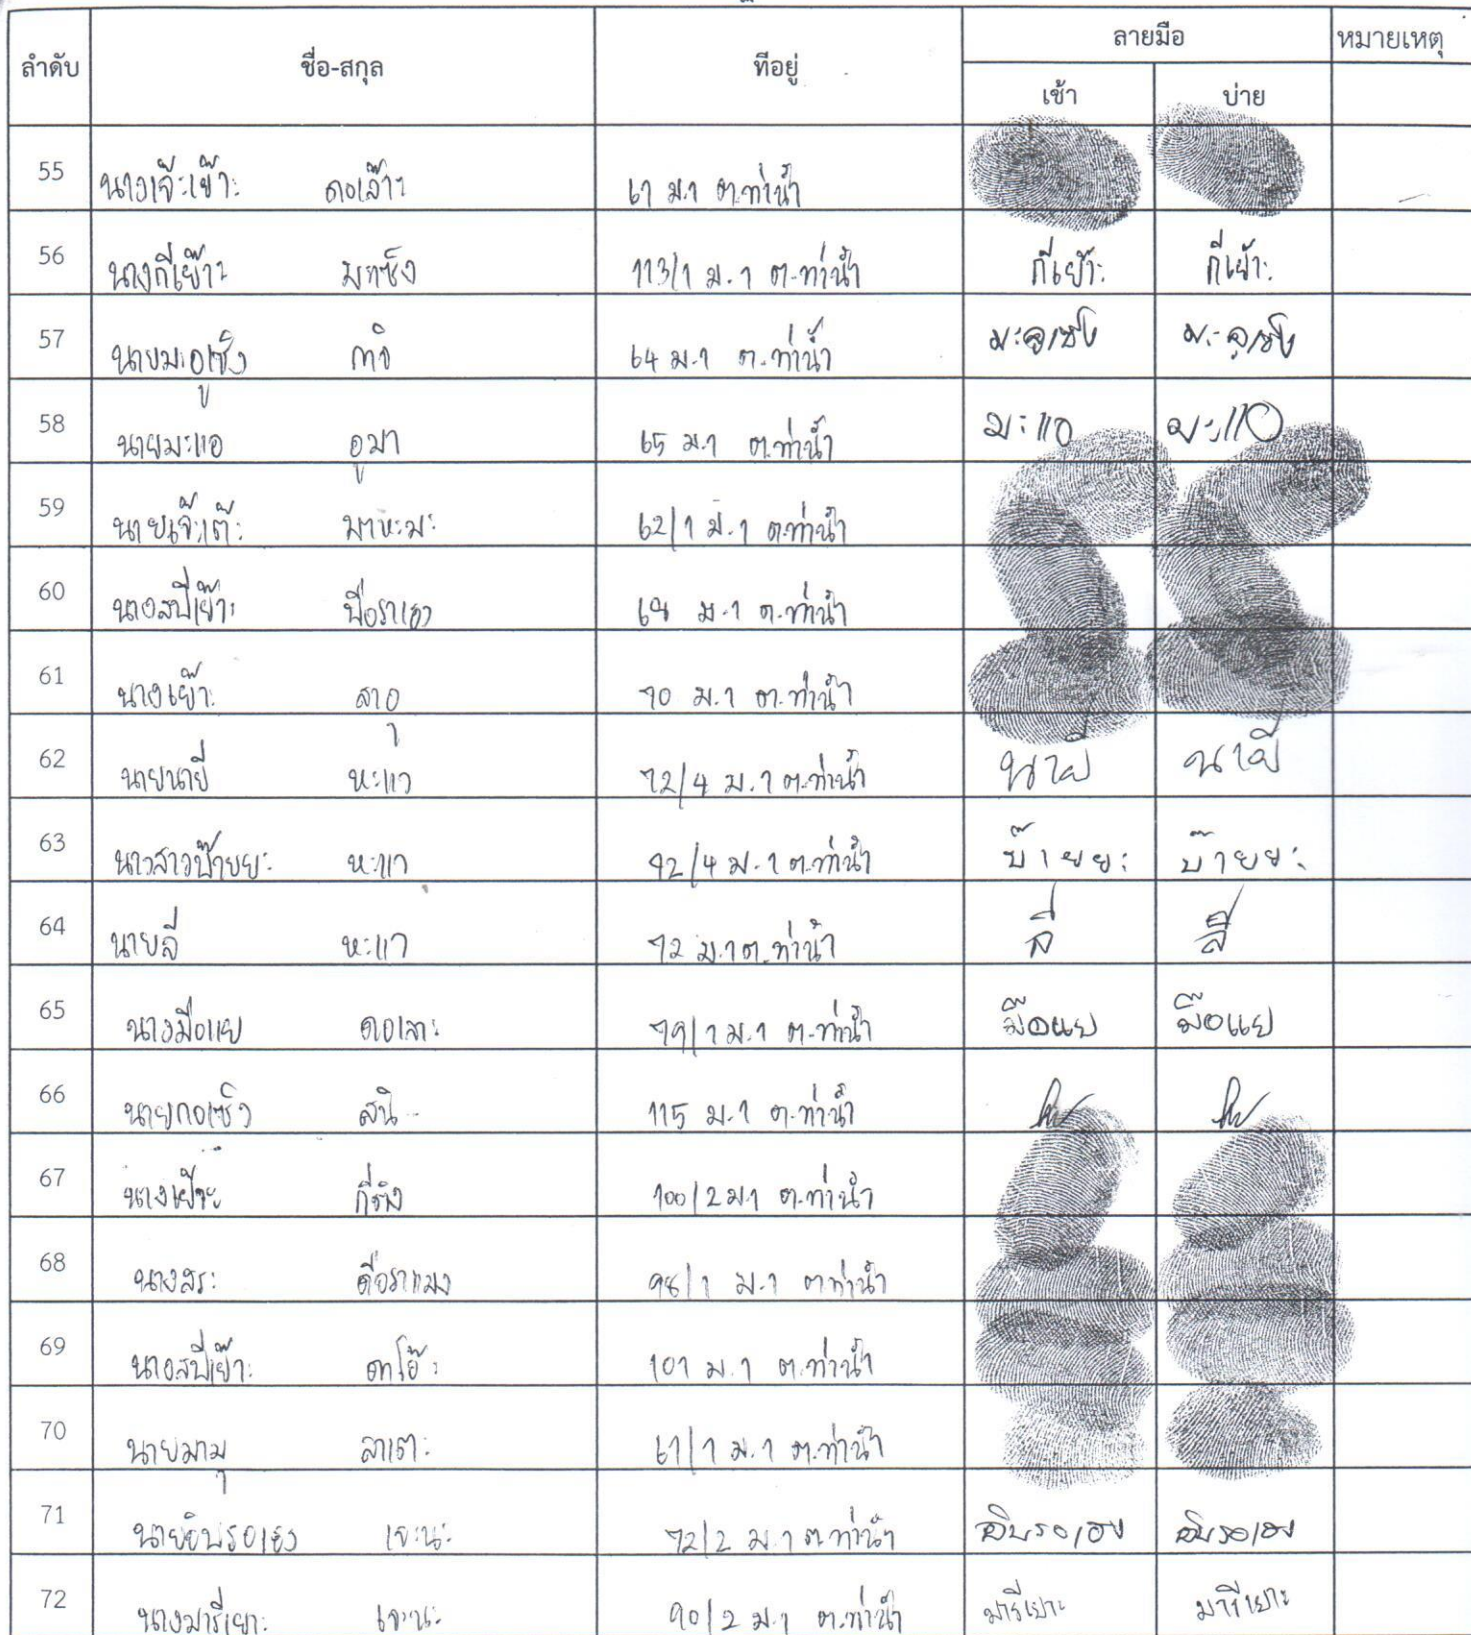 ลำดับ ชื่อ-สกุล ที่อยู่ ลายมือ หมายเหตุ
เช้า บ่าย
55 นางเจ๊ะเย๊าะ ดอเล๊าะ 67 ม.1 ต.ท่าน้ำ
56 นางกีเย๊าะ มาซ็ง 113/1 ม.1 ต.ท่าน้ำ กีเย๊าะ กีเย๊าะ
57 64 ม.1 ต.ท่าน้ำ
58 นายมะแอ อูมา 65 ม.1 ต.ท่าน้ำ มะแอ มะแอ
59 นายเจ๊ะเต๊ะ มาหะมะ 62/1 ม.1 ต.ท่าน้ำ
60 ม.1 ต.ท่าน้ำ
61 นางเย๊าะ 70 ม.1 ต.ท่าน้ำ
62 นายนายี หะแว 72/4 ม.1 ต.ท่าน้ำ นายี นายี
63 นางสาวบ๊ายยะ หะแว /4 ม.1 ต.ท่าน้ำ บ๊ายยะ บ๊ายยะ
64 นายลี หะแว 72 ม.1 ต.ท่าน้ำ ลี ลี
65 นางมือแย ดอเลาะ 79/1 ม.1 ต.ท่าน้ำ มือแย มือแย
66 นายกอเซ็ง สนิ 115 ม.1 ต.ท่าน้ำ
67 100/2 ม.1 ต.ท่าน้ำ
68 นางสระ ดือราแมง 98/1 ม.1 ต.ท่าน้ำ
69 101 ม.1 ต.ท่าน้ำ
70 นายมามุ ลาเตะ 67/1 ม.1 ต.ท่าน้ำ
71 นายอิบรอเฮง เจะนะ 72/2 ม.1 ต.ท่าน้ำ อิบรอเฮง อิบรอเฮง
72 นางมารีเยาะ เจะนะ 90/2 ม.1 ต.ท่าน้ำ มารีเยาะ มารีเยาะ